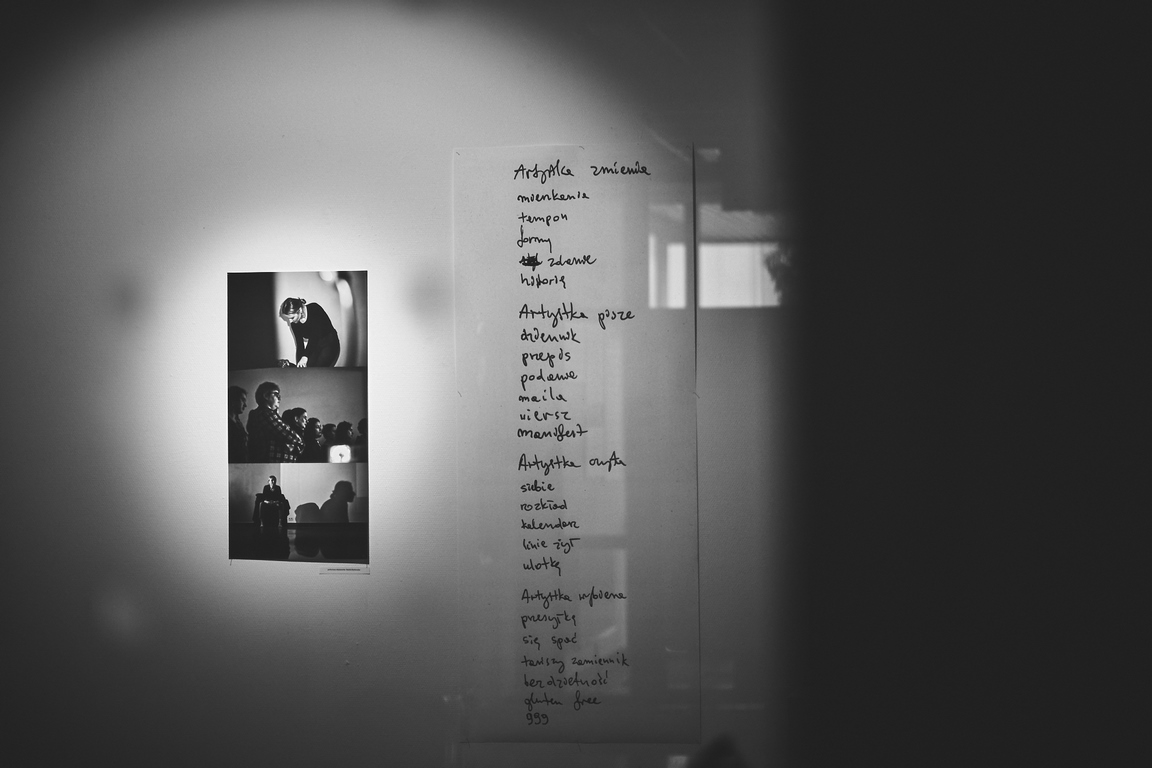 Artystka zmienia
mieszkanie
tempon
formy
zdanie
historię
Artystka pisze
dziennik
przepis
podanie
maila
wiersz
manifest
Artystka czyta
siebie
rozkład
kalendarz
linie żył
ulotkę
Artystka wybiera
przesyłkę
się spać
tańszy zamiennik
bezdzietność
gluten free
999